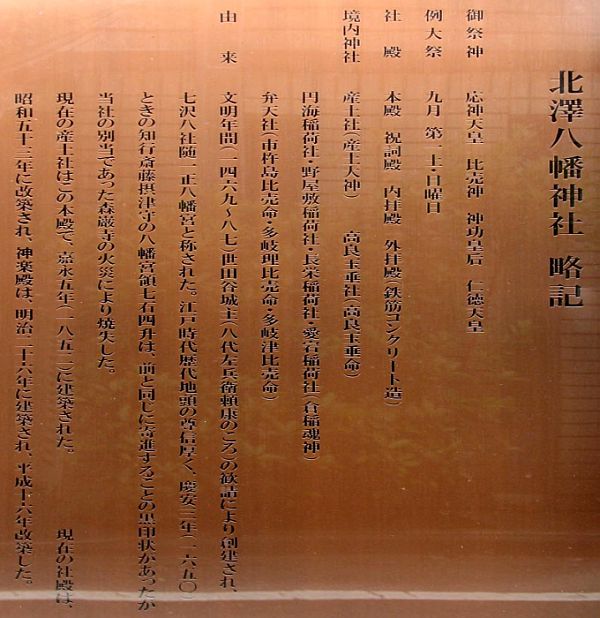 北澤八幡神社 略記
御祭神 応神天皇 比売神 神功皇后 仁徳天皇
例大祭 九月 第一土・日曜日
社殿 本殿 祝詞殿 内拝殿 外拝殿(鉄筋コンクリート造)
境内神社 産土社(産土大神) 高良玉垂社(高良玉垂命)
円海稲荷社・野屋敷稲荷社・長栄稲荷社・愛宕稲荷社(倉稲魂神)
弁天社(市杵島比売命・多岐理比売命・多岐津比売命)
由来 文明年間(一四六九〜八七)世田谷城主(八代左兵衛頼康のころ)の歓請により創建され、
七沢八社随一正八幡宮と称された。江戸時代歴代地頭の尊信厚く、慶安三年(一六五〇)
ときの知行斎藤摂津守の八幡宮領七石四升は、前と同じに寄進することの黒印状があったか
当社の別当であった森巌寺の火災により焼失した。
現在の産土社はこの本殿で、嘉永五年(一八五二)に建築された。 現在の社殿は、
昭和五十三年に改築され、神楽殿は、明治二十六年に建築され、平成十六年改築した。